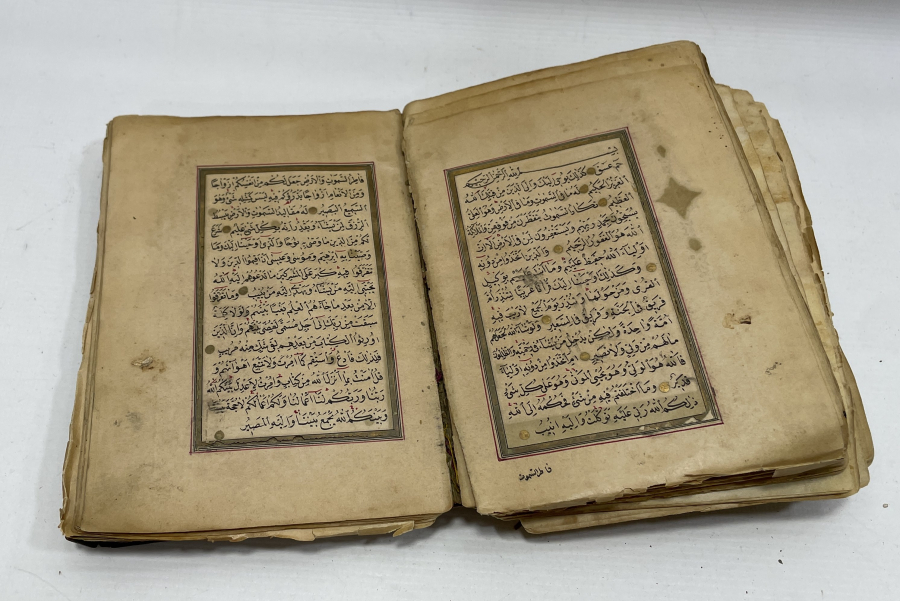 بسم الله الرحمن الرحيم
حم عسق كذلك يوحي اليك والى الذين من قبلك الله
العزيز الحكيم له ما في السموات وما في الارض وهو العلي
العظيم تكاد السموات يتفطرن من فوقهن والملئكة
يسبحون بحمد ربهم ويستغفرون لمن في الارض الا ان
الله هو الغفور الرحيم والذين اتخذوا من دونه
اولياء الله حفيظ عليهم وما انت عليهم بوكيل
وكذلك اوحينا اليك قرانا عربيا لتنذر ام
القرى ومن حولها وتنذر يوم الجمع لا ريب فيه
فريق في الجنة وفريق في السعير ولو شاء الله لجعلهم
امة واحدة ولكن يدخل من يشاء في رحمته والظالمون
ما لهم من ولي ولا نصير ام اتخذوا من دونه اولياء
فالله هو الولي وهو يحيي الموتى وهو على كل شيء
قدير وما اختلفتم فيه من شيء فحكمه الى الله
ذلكم الله ربي عليه توكلت واليه انيب
فاطر السموات
فاطر السموات والارض جعل لكم من انفسكم ازواجا
ومن الانعام ازواجا يذرؤكم فيه ليس كمثله شيء وهو
السميع البصير له مقاليد السموات والارض يبسط
الرزق لمن يشاء ويقدر انه بكل شيء عليم شرع
لكم من الدين ما وصى به نوحا والذي اوحينا اليك وما
وصينا به ابرهيم وموسى وعيسى ان اقيموا الدين ولا
تتفرقوا فيه كبر على المشركين ما تدعوهم اليه الله
يجتبي اليه من يشاء ويهدي اليه من ينيب وما تفرقوا
الا من بعد ما جاءهم العلم بغيا بينهم ولولا كلمة
سبقت من ربك الى اجل مسمى لقضي بينهم وان الذين
اورثوا الكتاب من بعدهم لفي شك منه مريب
فلذلك فادع واستقم كما امرت ولا تتبع اهواءهم و
قل امنت بما انزل الله من كتاب وامرت لاعدل بينكم الله
ربنا وربكم لنا اعمالنا ولكم اعمالكم لا حجة بيننا
وبينكم الله يجمع بيننا واليه المصير